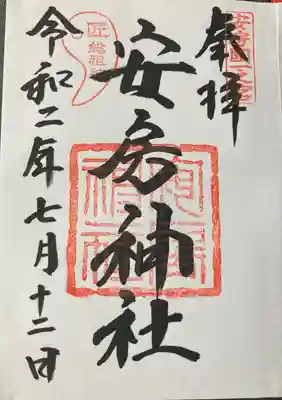 奉拝
安房国一之宮
安房神社
匠総祖神
令和二年七月十二日